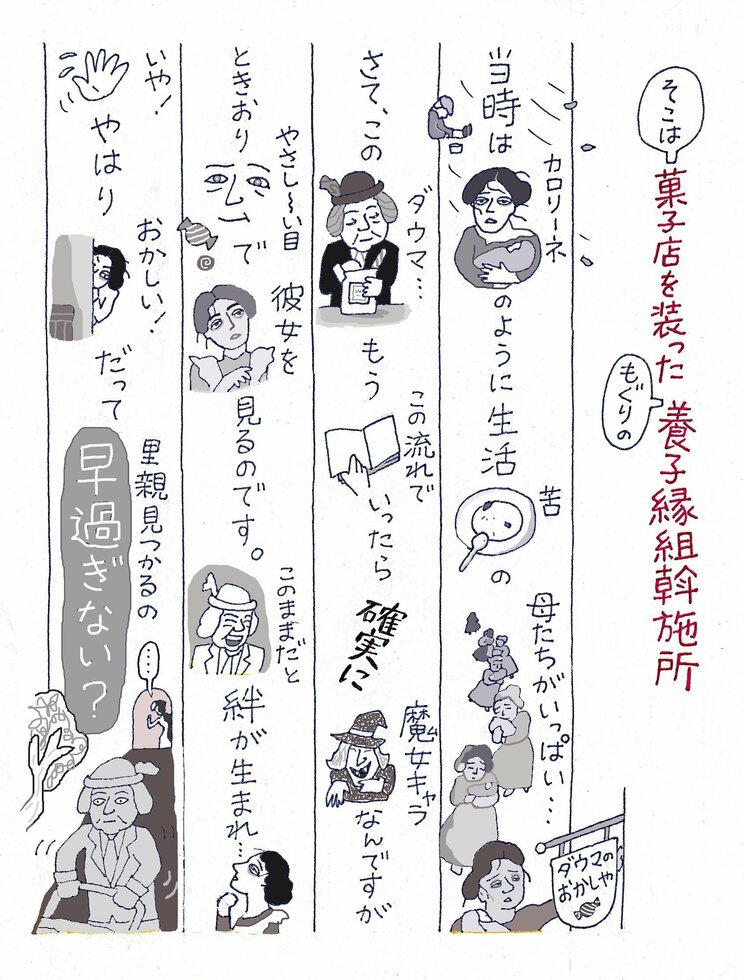 そこは
菓子店を装った
もぐりの
養子縁組斡施所
当時は
カロリーネ
のように生活
苦
の
母たちがいっぱい…
ダウマの
おかしや
さて、この
ダウマ…
もう
この流れで
いったら
確実に
魔女キャラ
なんですが
ときおり
やさし〜い目
で
彼女を
見るのです。
このままだと
絆が生まれ…
いや!
やはり
おかしい!
だって
里親見つかるの
早過ぎない?
・・・・